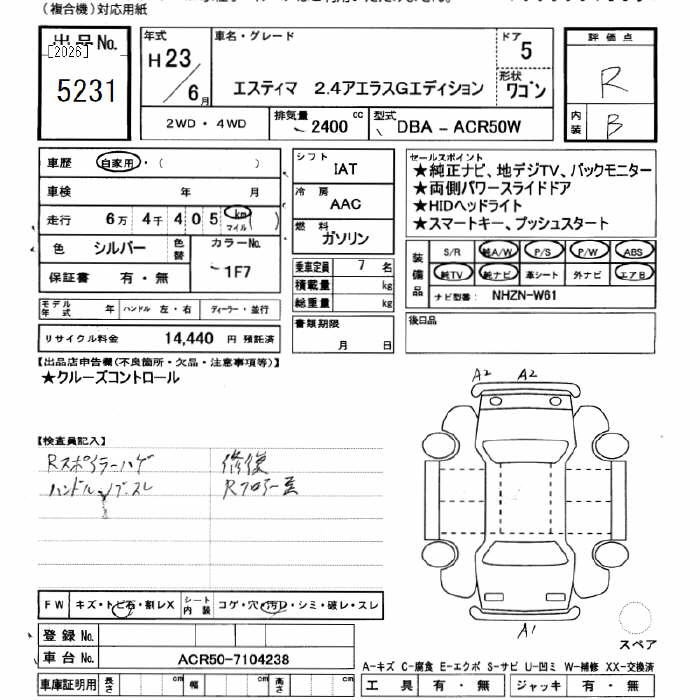 (複合機)対応用紙
出品No.
[2026]
5231
年式
H23/6月
車名・グレード
エスティマ 2.4アエラスGエディション
ドア
5
形状
ワゴン
評価点
R
内装
B
2WD・4WD
排気量
2400 cc
型式
DBA - ACR50W
車歴 自家用・( )
車検 年 月
走行 6万 4千 4 0 5 km マイル ( )
色 シルバー 色替
カラーNo.
1F7
保証書 有・無
モデル年式 年 ハンドル 左・右 ディーラー・並行
リサイクル料金 14,440 円 預託済
シフト
IAT
冷房
AAC
燃料
ガソリン
乗車定員 7 名
積載量 kg
総重量 kg
書類期限
月 日
セールスポイント
★純正ナビ、地デジTV、バックモニター
★両側パワースライドドア
★HIDヘッドライト
★スマートキー、プッシュスタート
装備品
S/R 純A/W P/S P/W ABS
純TV 純ナビ 革シート 外ナビ エアB
ナビ型番: NHZN-W61
後日品
【出品店申告欄(不良箇所・欠品・注意事項等)】
★クルーズコントロール
A2 A2
【検査員記入】
Rスポイラーハゲ 修復
ハンドル、ノブ、スレ Rフロアー歪
FW キズ・トビ石・割レX シート内装 コゲ・穴・汚レ・シミ・破レ・スレ
A1
スペア
登録No.
車台No. ACR50-7104238
A-キズ C-腐食 E-エクボ S-サビ U-凹ミ W-補修 XX-交換済
車庫証明用 長さ cm 幅 cm 高さ cm
工具 有・無 ジャッキ 有・無